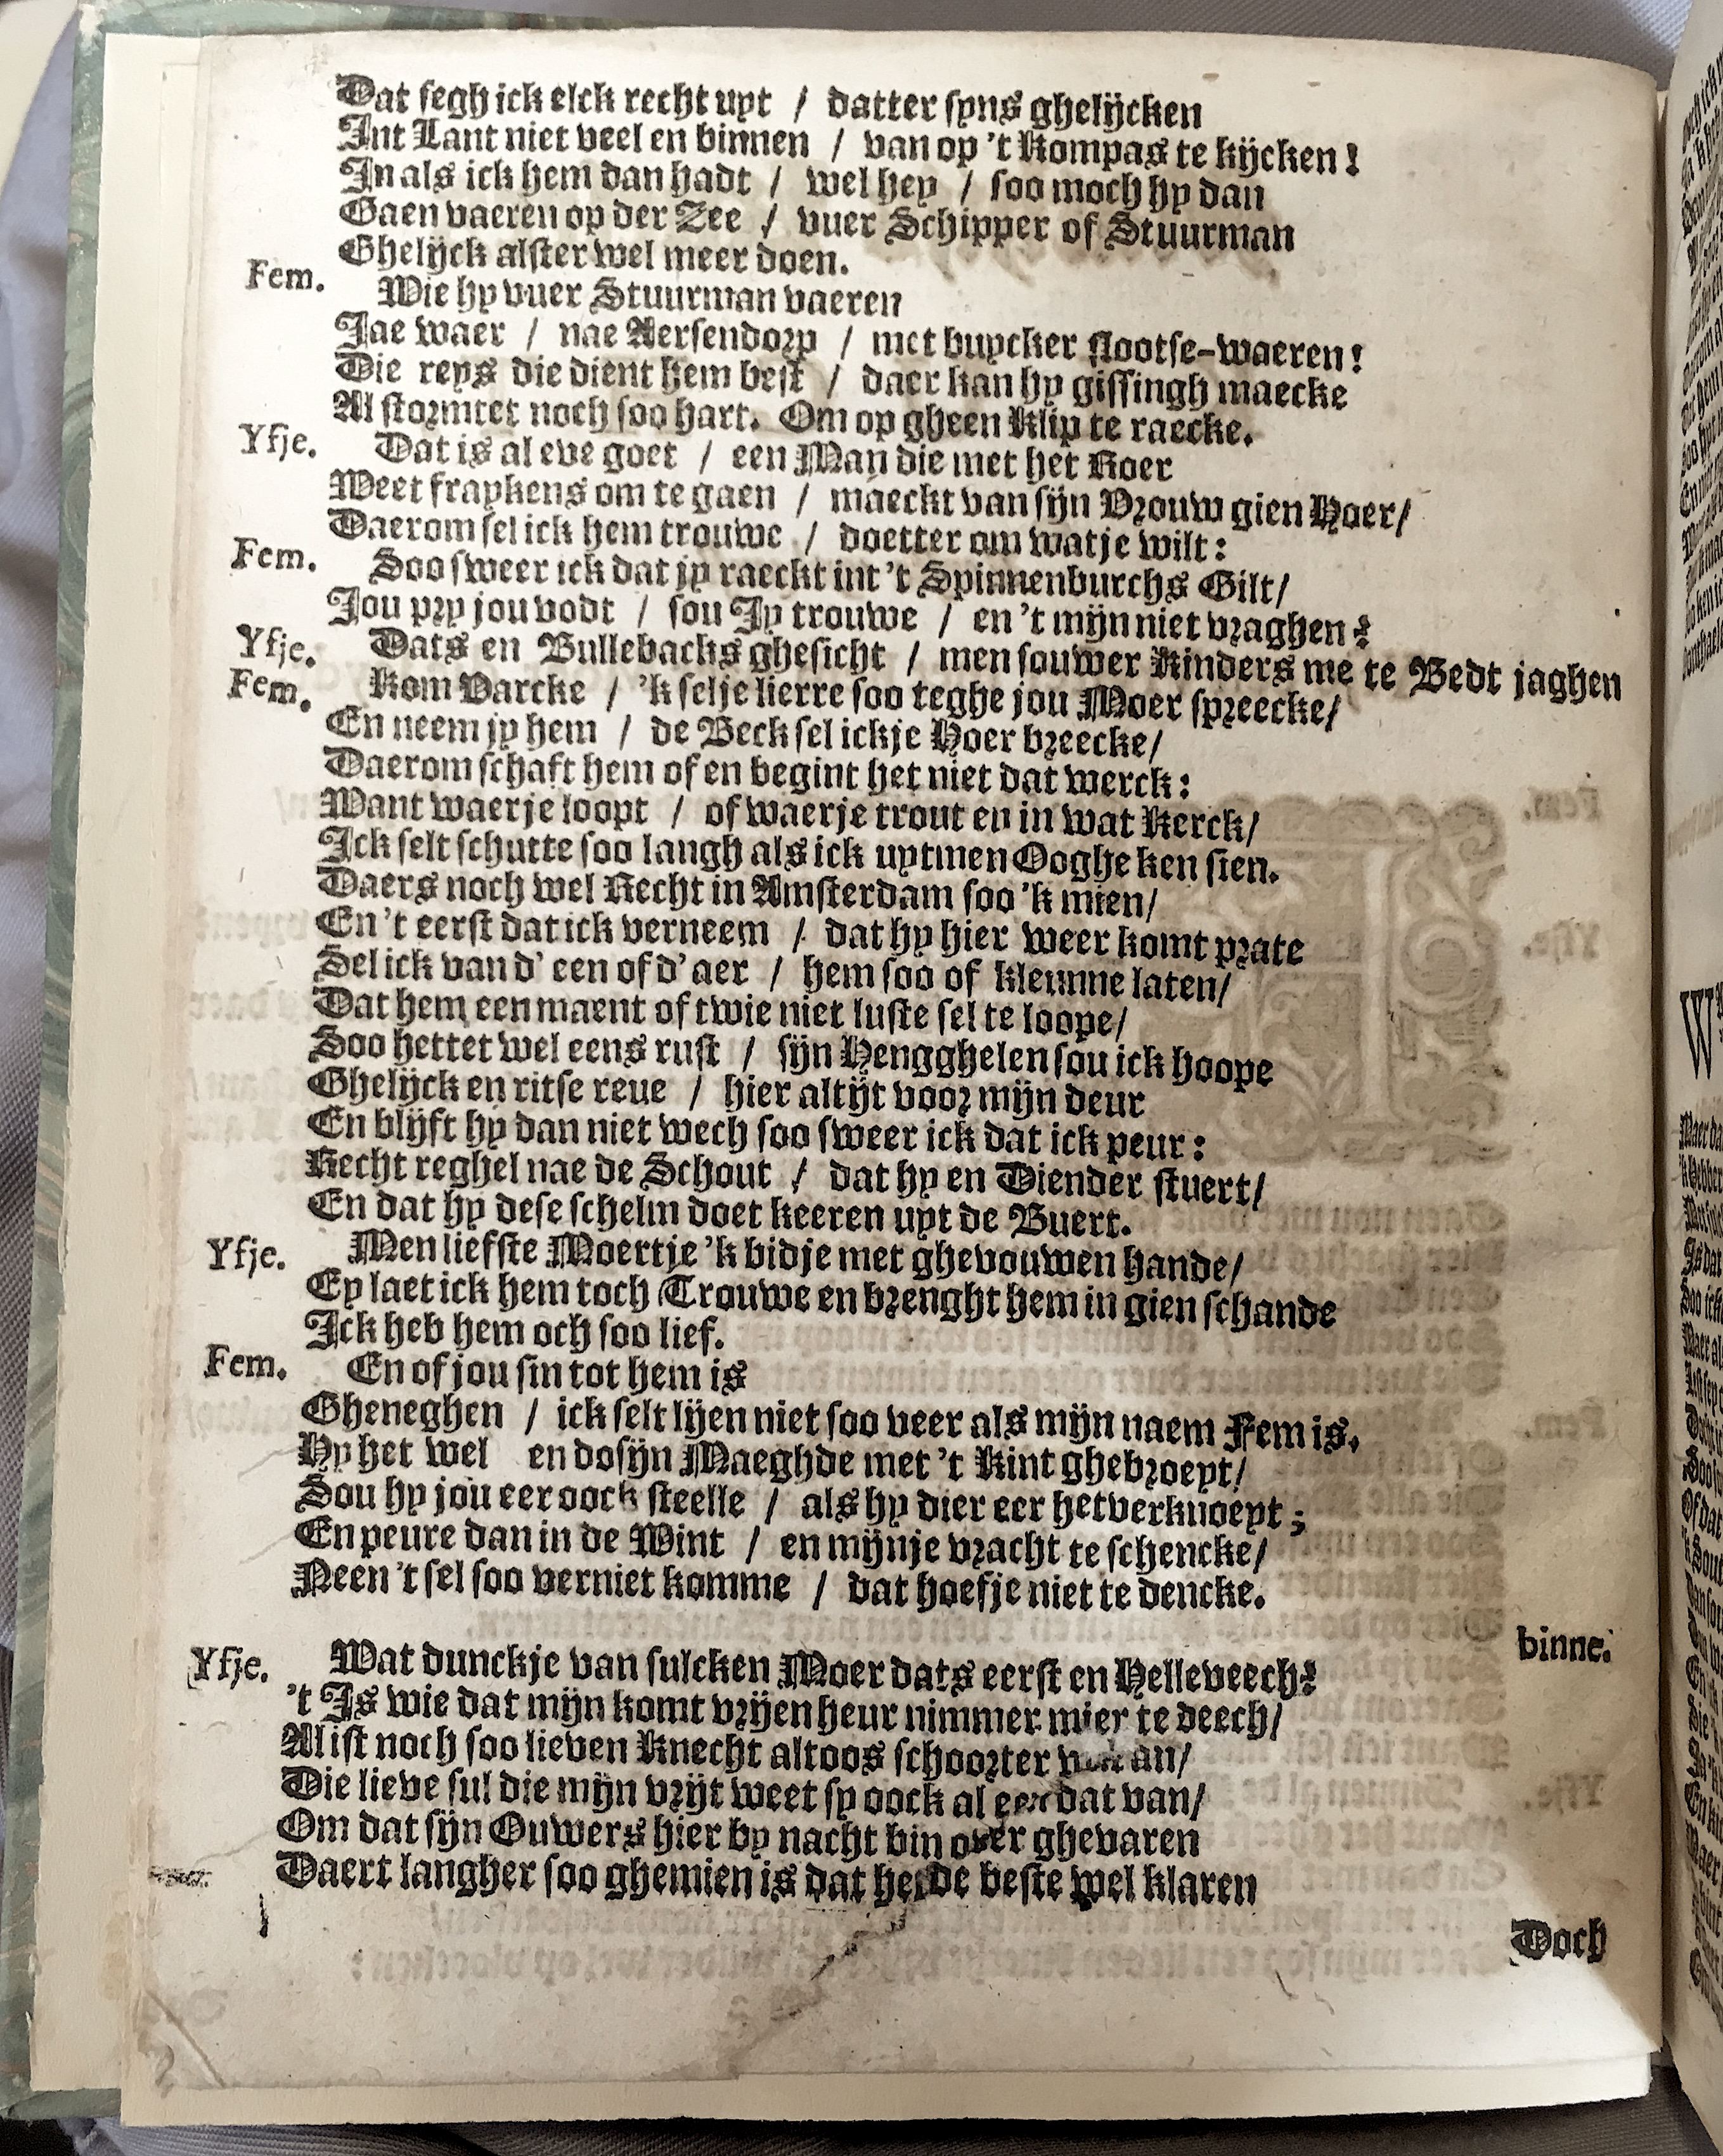 Dat segh ick elck recht uyt / datter syns ghelijcken
Int Lant niet veel en binnen / van op 't Kompas te kijcken!
In als ick hem dan hadt / wel hey / soo moch hy dan
Gaen vaeren op der Zee / vuer Schipper of Stuurman
Ghelijck alster wel meer doen.
Fem. Wie hy vuer Stuurman vaeren
Jae waer / nae Aersendorp / met buycker slootse-waeren!
Die reys die dient hem best / daer kan hy gissingh maecke
Al stormtet noch soo hart. Om op gheen Klip te raecke.
Yfje. Dat is al eve goet / een Man die met het Roer
Weet fraykens om te gaen / maeckt van sijn Vrouw gien Hoer/
Daerom sel ick hem trouwe / doetter om watje wilt:
Fem. Soo sweer ick dat jy raeckt int 't Spinnenburchs Gilt/
Jou pry jou vodt / sou Jy trouwe / en 't mijn niet vraghen?
Yfje. Dats en Bullebacks ghesicht / men souwer Kinders me te Bedt jaghen
Fem. Kom Varcke / 'k selje lierre soo teghe jou Moer spreecke/
En neem jy hem / de Beck sel ickje Hoer breecke/
Daerom schaft hem of en begint het niet dat werck:
Want waerje loopt / of waerje trout en in wat Kerck/
Ick selt schutte soo langh als ick uytmen Ooghe ken sien.
Daers noch wel Recht in Amsterdam soo 'k mien/
En 't eerst dat ick verneem / dat hy hier weer komt prate
Sel ick van d' een of d' aer / hem soo of kleunne laten/
Dat hem een maent of twie niet luste sel te loope/
Soo hettet wel eens rust / sijn Hengghelen sou ick hoope
Ghelijck en ritse reue / hier altijt voor mijn deur
En blijft hy dan niet wech soo sweer ick dat ick peur:
Recht reghel nae de Schout / dat hy en Diender stuert/
En dat hy dese schelm doet keeren uyt de Buert.
Yfje. Men liefste Moertje 'k bidje met ghevouwen hande/
Ey laet ick hem toch Trouwe en brenght hem in gien schande
Ick heb hem och soo lief.
Fem. En of jou sin tot hem is
Gheneghen / ick selt lijen niet soo veer als mijn naem Fem is.
Hy het wel en do sijn Maeghde met 't Kint ghebroeyt/
Sou hy jou eer oock steelle / als hy dier eer het verknoeyt;
En peure dan in de Wint / en mijnje vracht te schencke/
Neen 't sel soo verniet komme / dat hoefje niet te dencke.
binne.
Yfje. Wat dunckje van sulcken Moer dats eerst en Helleveech?
't Is wie dat mijn komt vrijen heur nimmer mier te deech/
Al ist noch soo lieven Knecht altoos schoorter wat an/
Die lieve sul die mijn vrijt weet sy oock al een dat van/
Om dat sijn Ouwers hier by nacht bin over ghevaren
Daert langher soo ghemien is dat het de beste wel klaren
Doch